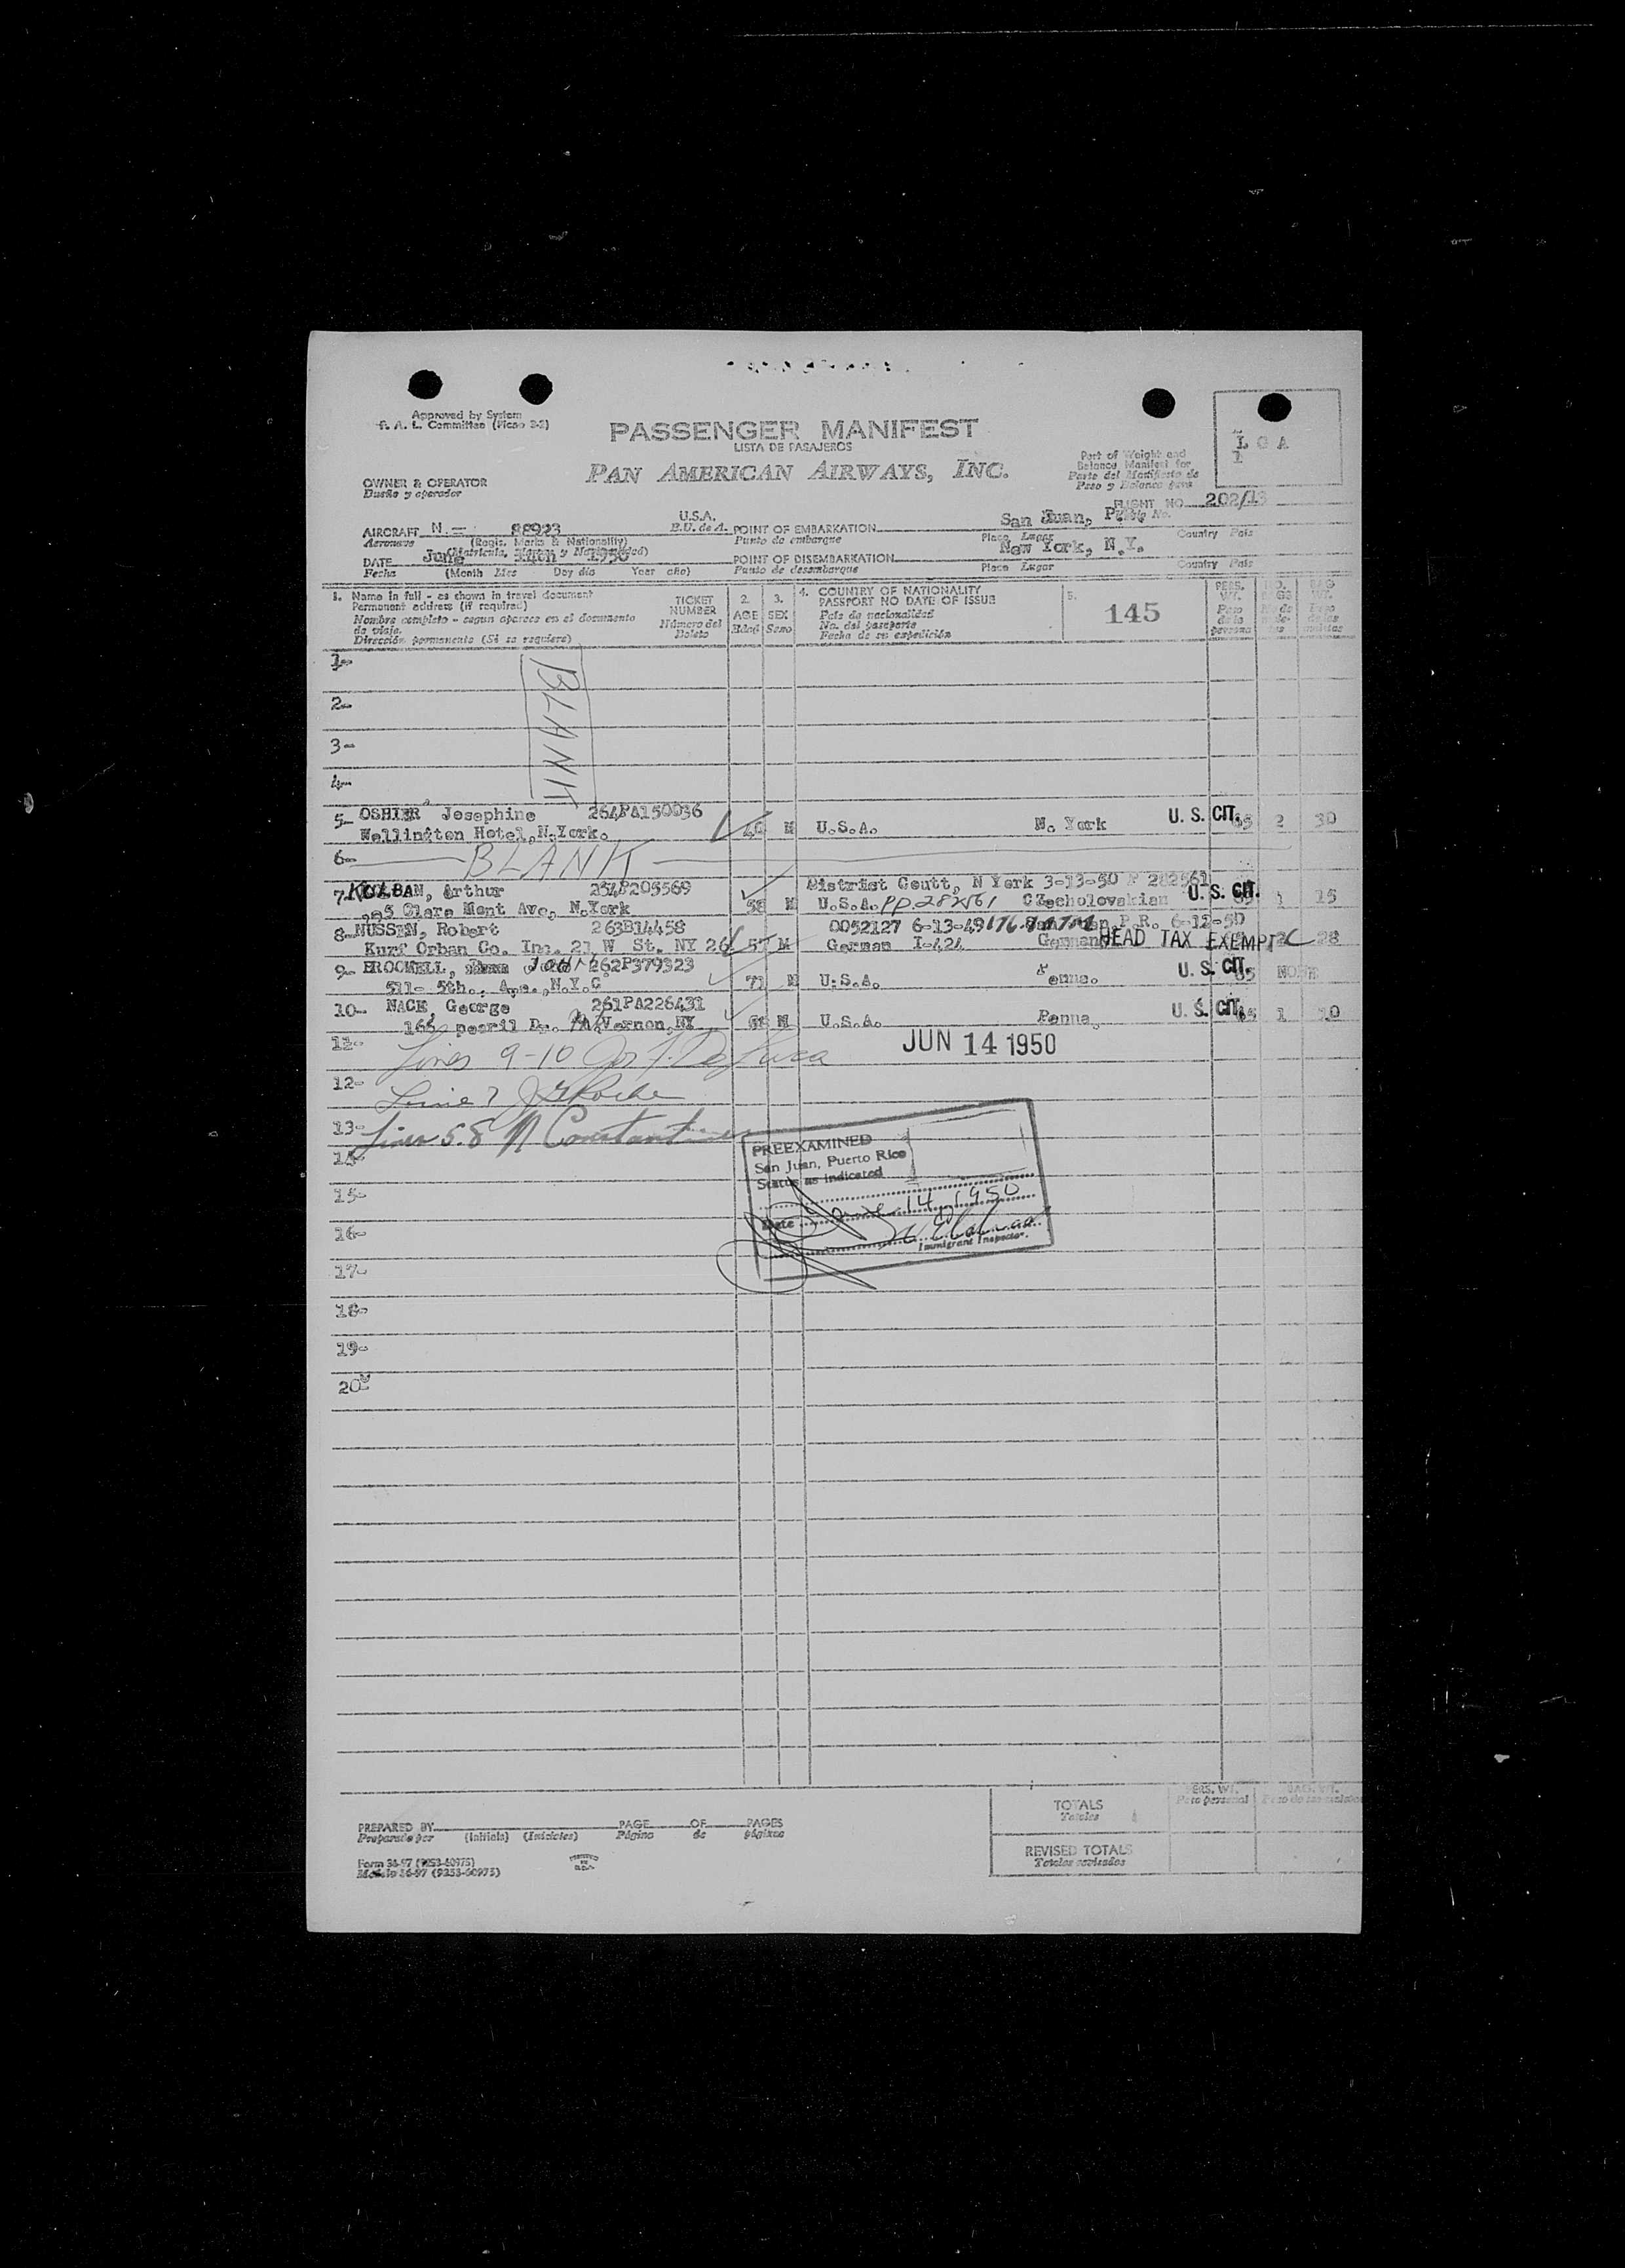 Approved by System
F. A. L. Committee (Picao 2-2)
PASSENGER MANIFEST
LISTA DE PASAJEROS
PAN AMERICAN AIRWAYS, INC.
L G A
1
Part of Weight and
Balance Manifest for
Parte del Manifiesto de
Peso y Balance para
OWNER & OPERATOR
Dueño y operador
FLIGHT NO. 202/13
AIRCRAFT N - 88923 U.S.A. E.U. de A. POINT OF EMBARKATION San Juan, P.R.
Aeronave (Regis. Marks & Nationality) Punto de embarque Place Lugar Country Pais
DATE June 14th 1950 POINT OF DISEMBARKATION New York, N.Y.
Fecha (Month Mes Day dia Year año) Punto de desembarque Place Lugar Country Pais
1. Name in full - as shown in travel document
Permanent address (if required)
Nombre completo - segun aparece en el documento
de viaje.
Dirección permanente (Si se requiere)
TICKET NUMBER
Número del Boleto
2. AGE Edad
3. SEX Sexo
4. COUNTRY OF NATIONALITY
PASSPORT NO DATE OF ISSUE
Pais de nacionalidad
No. del pasaporte
Fecha de su expedición
5. 145
PERS. WT.
Peso de la persona
BAG WT.
1-
BLANK
2-
3-
4-
5- OSHIER, Josephine 264PA150036
Wellington Hotel, N.York. 40 M U.S.A. N. York U. S. CIT. 2 30
6- BLANK
7- KOLBAN, Arthur 254P205569 District Coutt, N York 3-13-50 P 282561
5 Clare Mont Ave, N.York 58 M U.S.A. PP.282561 Czecholovakian U. S. CIT. 1 15
8- NUSSEN, Robert 263B14458 0052127 6-13-49 P.R. 6-12-50
Kurf Orban Co. Inc. 21 W St. NY 26 57 M German I-424 HEAD TAX EXEMPT 28
9- BROCWELL, John 262P379323
511- 5th., Ave., N.Y.C 71 M U.S.A. Penna. U. S. CIT. NONE
10- NACE, George 261PA226431
165 pearil Dr. Mt Vernon, NY M U.S.A. Penna. U. S. CIT. 1 10
11- Lines 9-10 Jos. F. De Luca JUN 14 1950
12- Line 7
13- Lines 5.8 N Constantine
14-
PREEXAMINED
San Juan, Puerto Rico
Status as indicated
Date June 14, 1950
Immigrant Inspector.
15-
16-
17-
18-
19-
20-
TOTALS
Totales
PERS. WT.
Peso personal
REVISED TOTALS
Totales revisados
PREPARED BY PAGE OF PAGES
Preparado por (Initials) (Iniciales) Página de páginas
Form 36-97 (9253-60975)
Modelo 36-97 (9253-60975)